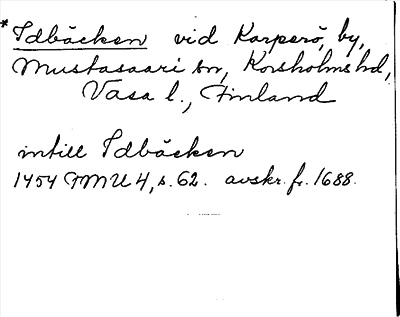 *Idbäcken vid Karperö, by,
Mustasaari sn, Korsholms hd,
Vasa l., Finland
intill Idbäcken
1454 FMU 4, s. 62. avskr. fr. 1688.